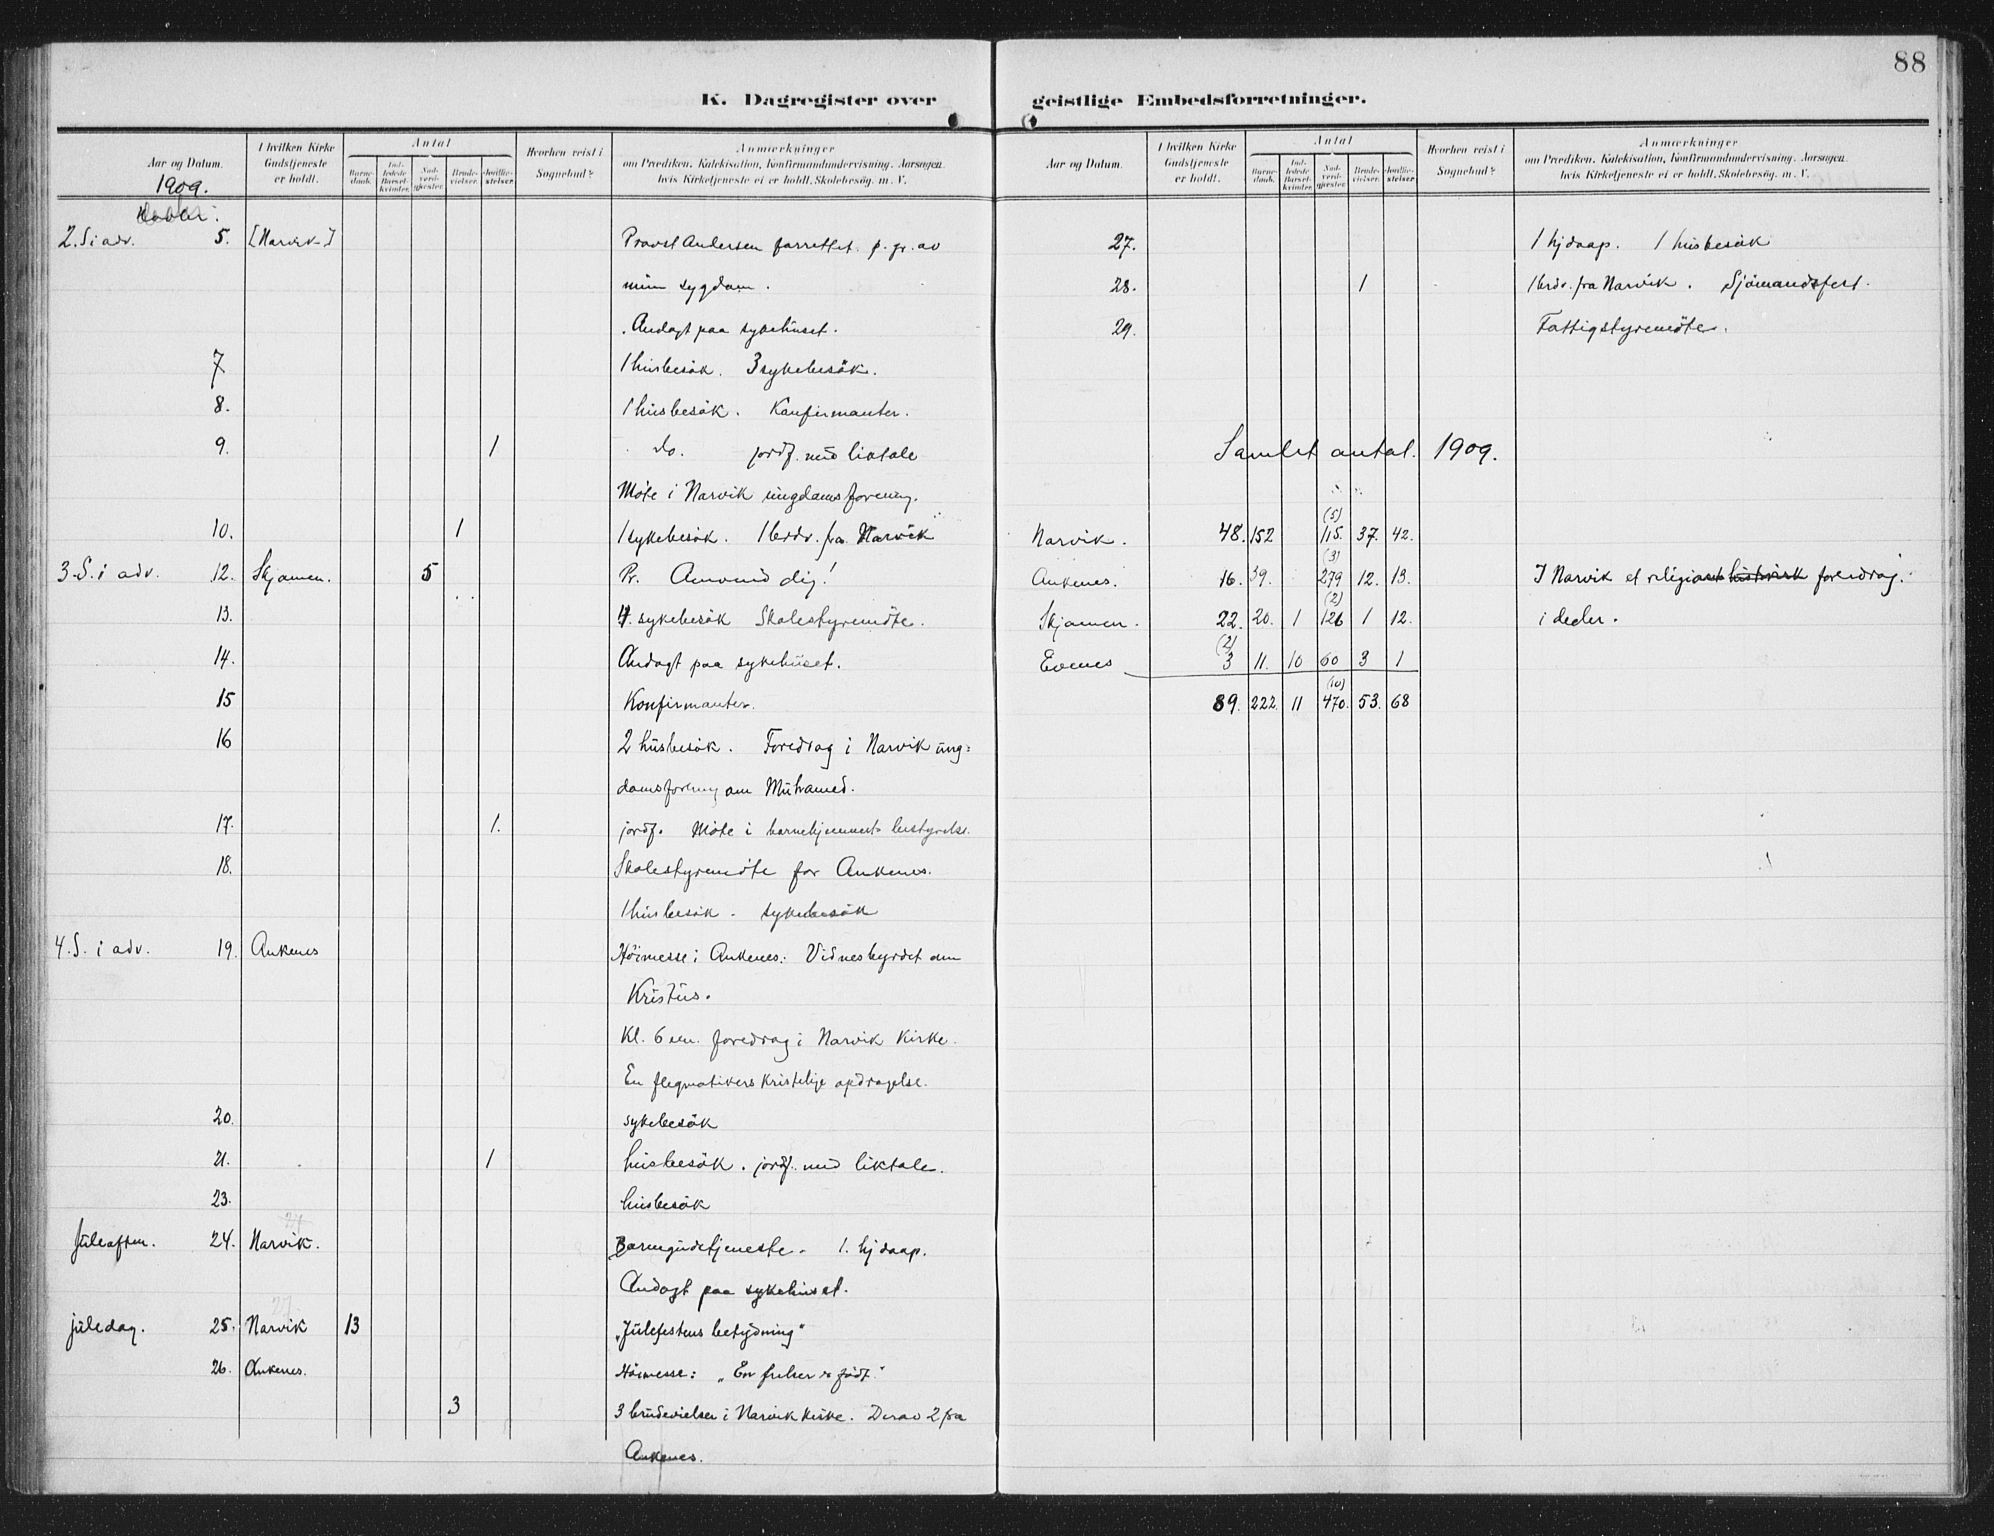 88
K. Dagregister over geistlige Embedsforretninger.
Aar og Datum. | I hvilken Kirke Gudstjeneste er holdt. | Antal | Barne-daab. | Ind-ledede Barsel-kvinder. | Nad-verd-gjester. | Brude-vielser. | Jordfæ-stelser. | Hvorhen reist i Sognebud? | Anmærkninger om Prædiken, Katekisation, Konfirmandundervisning, Aarsagen, hvis Kirketjeneste ei er holdt, Skolebesøg, m. V.
1909.
2. S i adv. 5. [Narvik] Provst Andersen forrettet p. gr. av
min sygdom.
Andagt paa sykehuset.
7 1 husbesök. 3 sykebesök.
8. 1 husbesök. Konfirmanter.
9. 1 do. jordf. med liktale
Möte i Narvik ungdomsforening.
10. 1 1 sykebesök. 1 brdv. fra Narvik
3. S. i adv. 12. Skjomen. 5 Pr. Omvend dig!
13. 4. sykebesök Skolestyremöte.
14. Andagt paa sykehuset.
15 Konfirmanter.
16 2 husbesök. Foredrag i Narvik ung=
domsforening om Muhamed.
17. 1. jordf. Möte i barnehjemmets bestyrelse.
18. Skolestyremöte for Ankenes.
1 husbesök. sykebesök
4. S. i adv. 19. Ankenes Höimesse i Ankenes: Vidnesbyrdet om
Kristus.
Kl. 6 em. foredrag i Narvik Kirke.
En flegmatikers kristelige opdragelse.
20. sykebesök
21. 1 husbesök. jordf. med liktale.
23. husbesök
Juleaften. 24. Narvik. Barnegudstjeneste. 1. hjdaap.
Andagt paa sykehuset.
juledag. 25. Narvik 13 "Julefestens betydning"
26. Ankenes. Höimesse: "En frelser er födt."
3 3 brudevielser i Narvik kirke. Derav 2 fra
Ankenes.
Aar og Datum. | I hvilken Kirke Gudstjeneste er holdt. | Antal | Barne-daab. | Ind-ledede Barsel-kvinder. | Nad-verd-gjester. | Brude-vielser. | Jordfæ-stelser. | Hvorhen reist i Sognebud? | Anmærkninger om Prædiken, Katekisation, Konfirmandundervisning, Aarsagen, hvis Kirketjeneste ei er holdt, Skolebesøg, m. V.
27. 1 hjdaap. 1 husbesök
28. 1 1 brdv. fra Narvik. Sjömandsfest.
29. Fattigstyremöte.
Samlet antal. 1909.
(5)
Narvik. 48. 152 115. 37. 42.
(3)
Ankenes. 16. 39. 279 12. 13. I Narvik et religiöst historisk foredrag.
(2)
Skjomen. 22. 20. 1 126 1 12. i decbr.
(2)
Evenes 3 11. 10 60 3 1
(10)
89. 222. 11 470. 53. 68